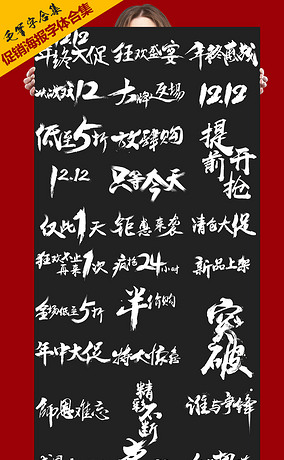 毛笔字合集
促销海报字体合集
年终大促 狂欢盛宴 年终献城
决战双12 大牌返场 12.12
低至5折 放肆购 提前开抢
12.12 只等今天
仅此1天 钜惠来袭 清仓大促
狂欢不止再来1次 疯抢24小时 新品上架
全场低至5折 半价购 突破
年中大促 特大惊喜
师恩难忘 精彩不断 谁与争锋